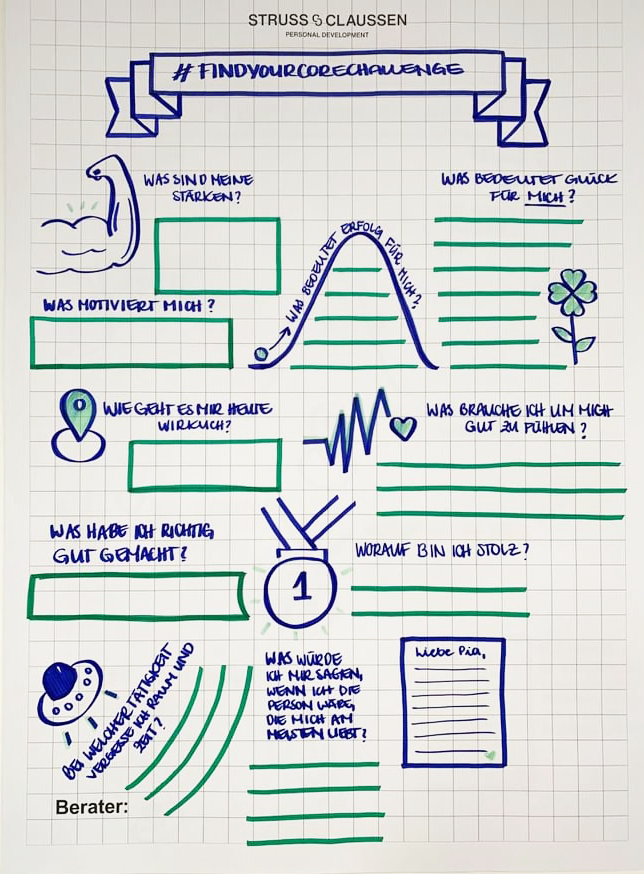 STRUSS & CLAUSSEN
PERSONAL DEVELOPMENT
# FINDYOURCORECHALLENGE
WAS SIND MEINE
STÄRKEN?
WAS BEDEUTET GLÜCK
FÜR MICH?
WAS BEDEUTET ERFOLG FÜR MICH?
WAS MOTIVIERT MICH?
WIE GEHT ES MIR HEUTE
WIRKLICH?
WAS BRAUCHE ICH UM MICH
GUT ZU FÜHLEN?
WAS HABE ICH RICHTIG
GUT GEMACHT?
1
WORAUF BIN ICH STOLZ?
BEI WELCHER TÄTIGKEIT
VERGESSE ICH RAUM UND
ZEIT?
WAS WÜRDE
ICH MIR SAGEN,
WENN ICH DIE
PERSON WÄRE,
DIE MICH AM
MEISTEN LIEBT?
Liebe Pia,
Berater: